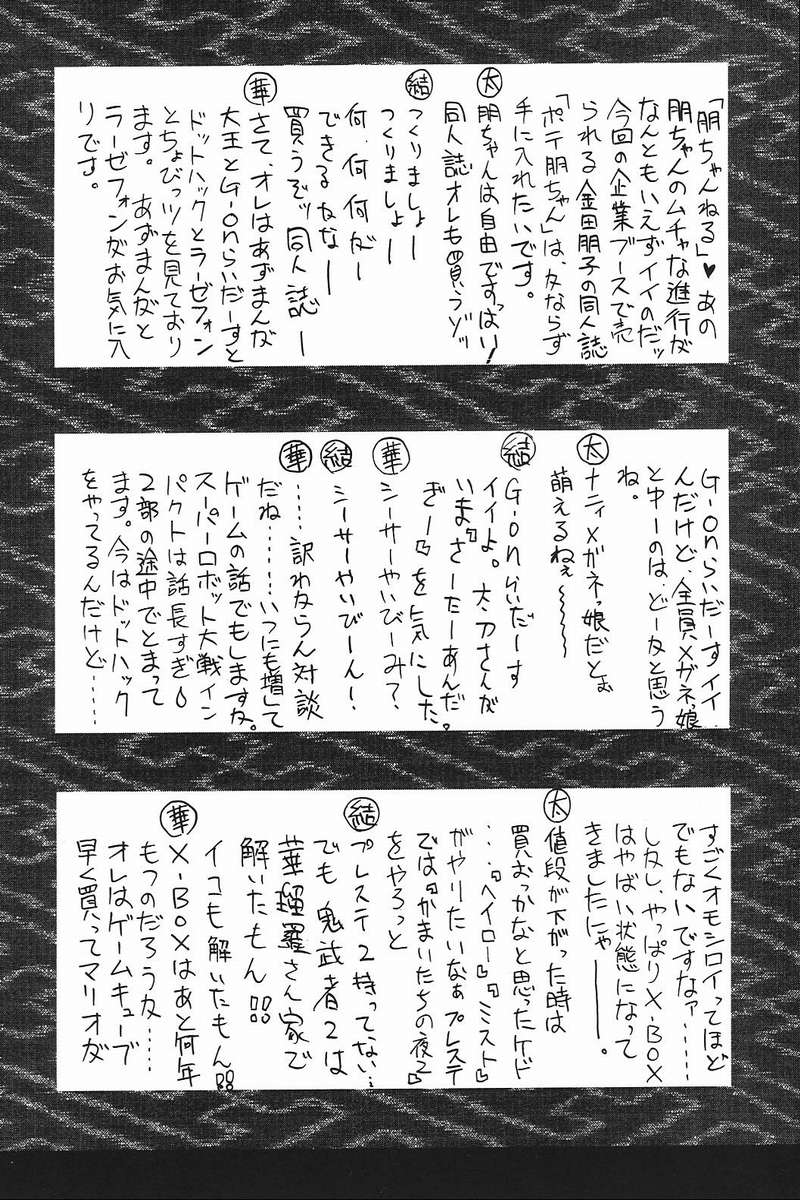 「朋ちゃんねる」♥あの
朋ちゃんのムチャな進行が
なんともいえずイイのだッ
今回の企業ブースで売
られる金田朋子の同人誌
「ポテ朋ちゃん」は、かならず
手に入れたいです。
太 朋ちゃんは自由ですっはい!
同人誌オレも買うゾッ
結 つくりましょー
つくりましょー
何、何、何がー
できるかなー
買うぞッ同人誌ー
華 さて、オレはあずまんが
大王とG-onらいだーすと
ドットハックとラーゼフォン
とちょびッツを見ており
ます。あずまんがと
ラーゼフォンがお気に入
りです。
G-onらいだーすイイ
んだけど、全員メガネっ娘
とゆーのは、どーかと思う
ね。
太 ナティメガネっ娘だとぉ
萌えるねぇ~~~~
結 G-onらいだーす
イイよ。太刀さんが
いま『さーたーあんだ
ぎー』を気にした。
華 シーサーやいびーみて?
結 シーサーやいびーん!
華 ……訳わからん対談
だね……いつにも増して
ゲームの話でもしますね。
スーパーロボット大戦イン
パクトは話長すぎ
2部の途中でとまって
ます。今はドットハック
をやってるんだけど……
すごくオモシロイってほど
でもないですなァ……
しかし、やっぱりX-BOX
はやばい状態になって
きましたにゃー。
太 値段が下がった時は
買おっかなと思ったケド
…『ヘイロー』『ミスト』
がやりたいなぁプレステ
では『かまいたちの夜2』
をやろっと
結 プレステ2持ってない…
でも鬼武者2は
華瑠羅さん家で
解いたもん!!
イコも解いたもん!!
華 X-BOXはあと何年
もつのだろうか……
オレはゲームキューブ
早く買ってマリオが